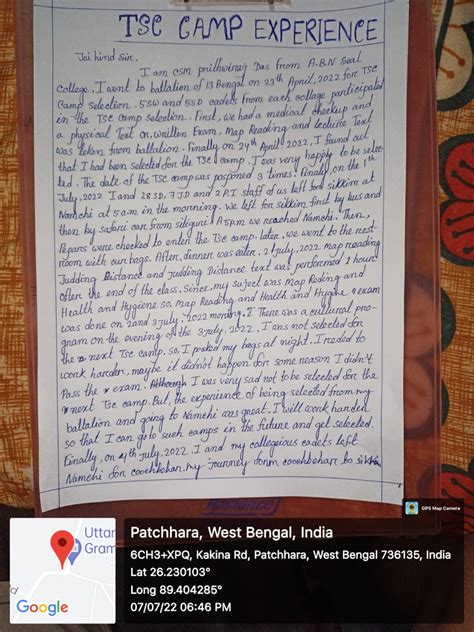 TSC CAMP EXPERIENCE
Jai hind Sir,
I am CSM prithwiraj Das from A.B.N Seal
College, I went to ballation of 13 Bengal on 23th April, 2022 for TSC
Camp selection. 5SW and 5SD cadets from each collage participated
in the TSC Camp selection. First, we had a medical checkup and
a physical Text or, written Exam, Map Reading and lecture Text
was teken from ballation. Finally on 24th April, 2022, I found out
that I had been selected for the TSC camp. I was very happy to be selec-
ted. The date of the TSC camp was posponed 3 times. Finaly, on the 1th
July, 2022 I and 28SD, 7JD and 2 P.I staff of us left for sikkim at
Namchi at 5am in the morning. We left for sikkim first by bus and
then by safari car from siliguri. A 5pm we reached Namchi. Then,
Pepars were checked to enter the TSC camp. later, we went to the rest-
room with our bags. After, dinner was eater. 2 July, 2022 map reading
Judding Distance and Judding Distance text was performed 1 hour
after the end of the class. Since, my suject was Map Reding and
Health and Hygiene so, Map Reading and Health and Hygine exam
was done on 2and 3 July, 2022 morning. There was a cultural pro-
gram on the evening of the 3 July, 2022. I was not selected for
the next TSC camp. so, I packed my bags at night. I needed to
work harder, maybe it didn't happen for some reason I didn't
Pass the exam. Although I was very sad not to be selected for the
next TSC camp. But, the experience of being selected from my
ballation and going to Namchi was great. I will work harder
so that I can go to such camps in the future and get selected.
Finally, on 4th July, 2022 I and my collegeious cadets left
Namchi for coochbehar. my journey form coochbehar to
GPS Map Camera
Uttar
Gram
Google
Patchhara, West Bengal, India
6CH3+XPQ, Kakina Rd, Patchhara, West Bengal 736135, India
Lat 26.230103°
Long 89.404285°
07/07/22 06:46 PM